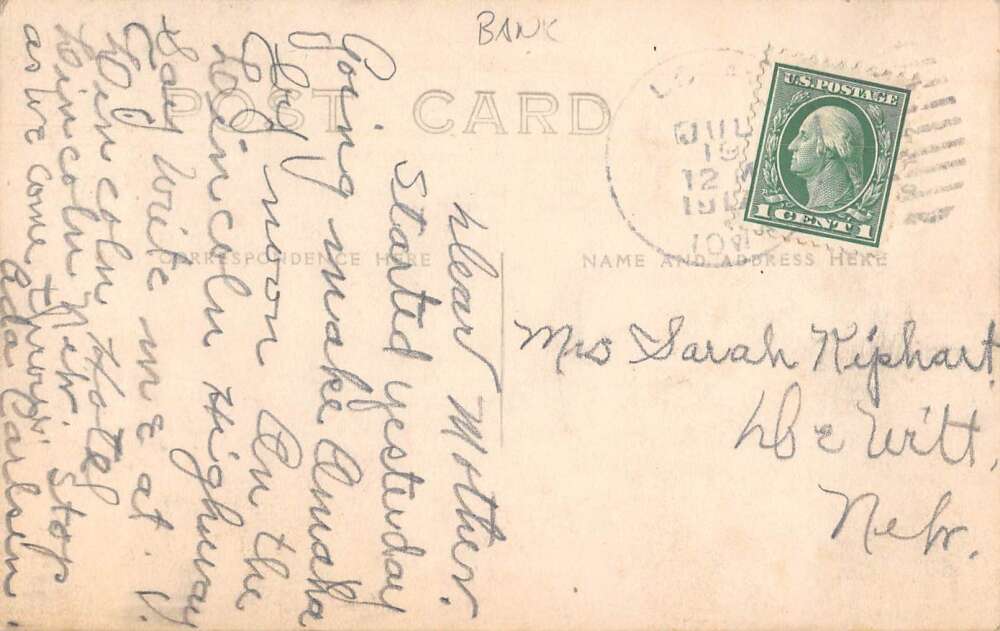 BANK
POST CARD
U.S. POSTAGE
1 CENT 1
JUL
12
CORRESPONDENCE HERE
NAME AND ADDRESS HERE
Dear Mother.
Started yesterday
Going make Omaha
by noon On the
Lincoln Highway
Say write me at
Lincoln Hotel
Lincoln Nebr. Stop
as we come through.
Ada Carlson
Mrs Sarah Kiphart
De Witt,
Nebr.